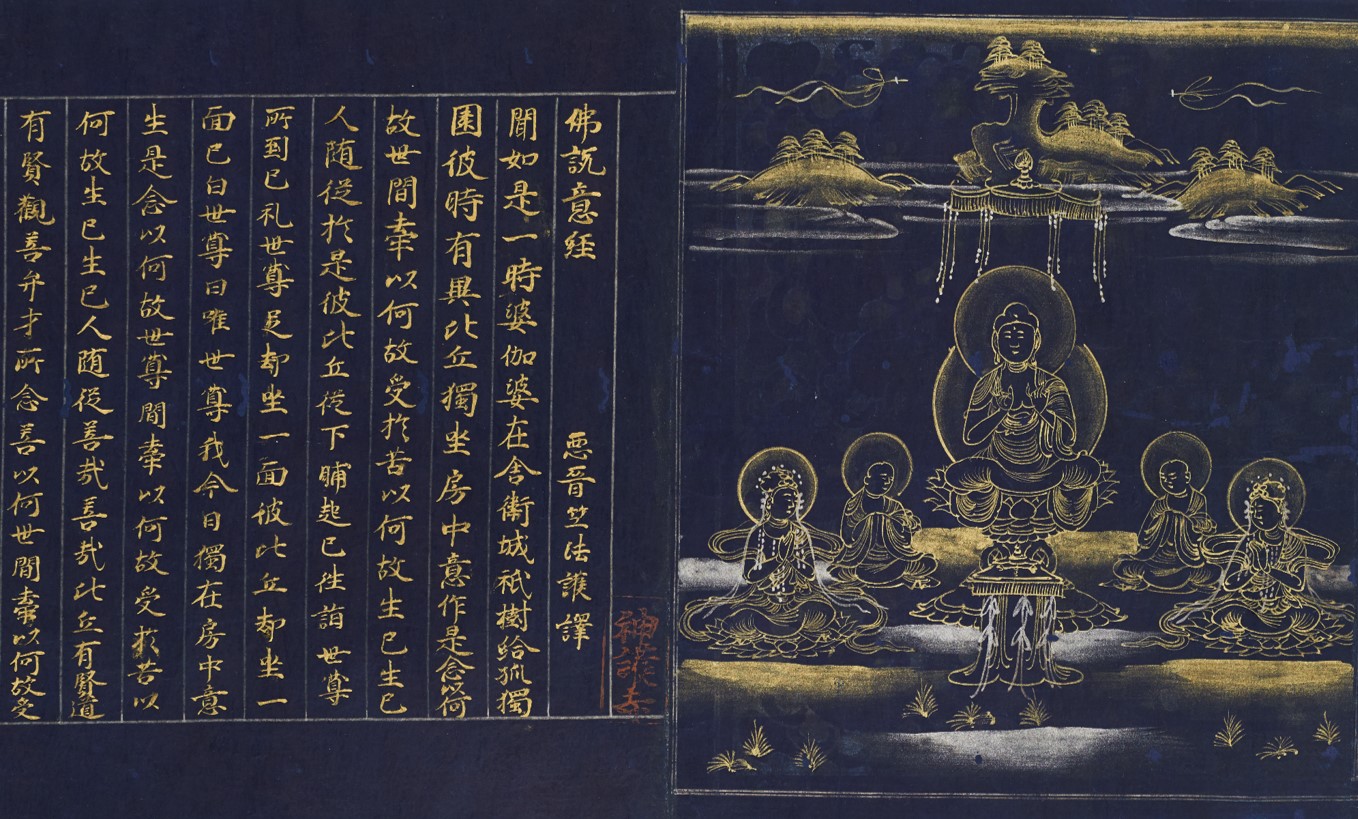 佛說意経 西晉竺法護譯
聞如是一時婆伽婆在舎衛城祇樹給孤獨
園彼時有異比丘獨坐房中意作是念以何
故世間牽以何故受於苦以何故生已生已
人随從於是彼比丘従下晡起已往詣世尊
所到已礼世尊足却坐一面彼比丘却坐一
面已白世尊曰唯世尊我今日獨在房中意
生是念以何故世尊間牽以何故受於苦以
何故生已生已人随従善哉善哉比丘有賢道
有賢觀善弁才所念善以何世間牽以何故受
神護寺